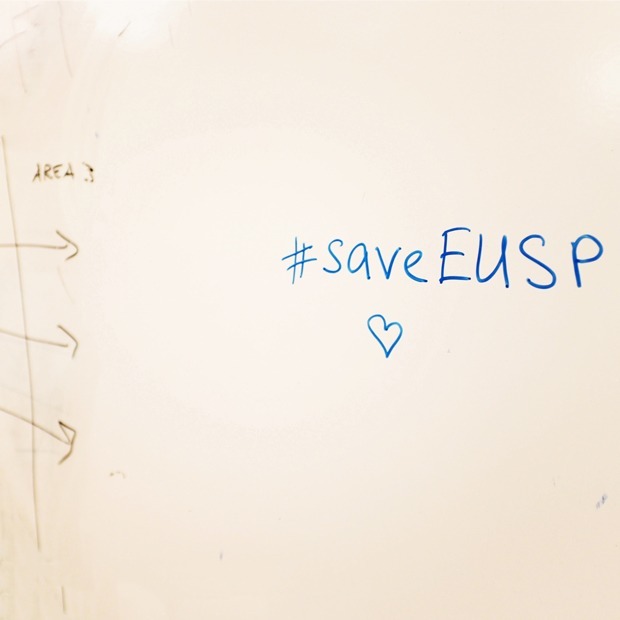 AREA 3
#saveEUSP